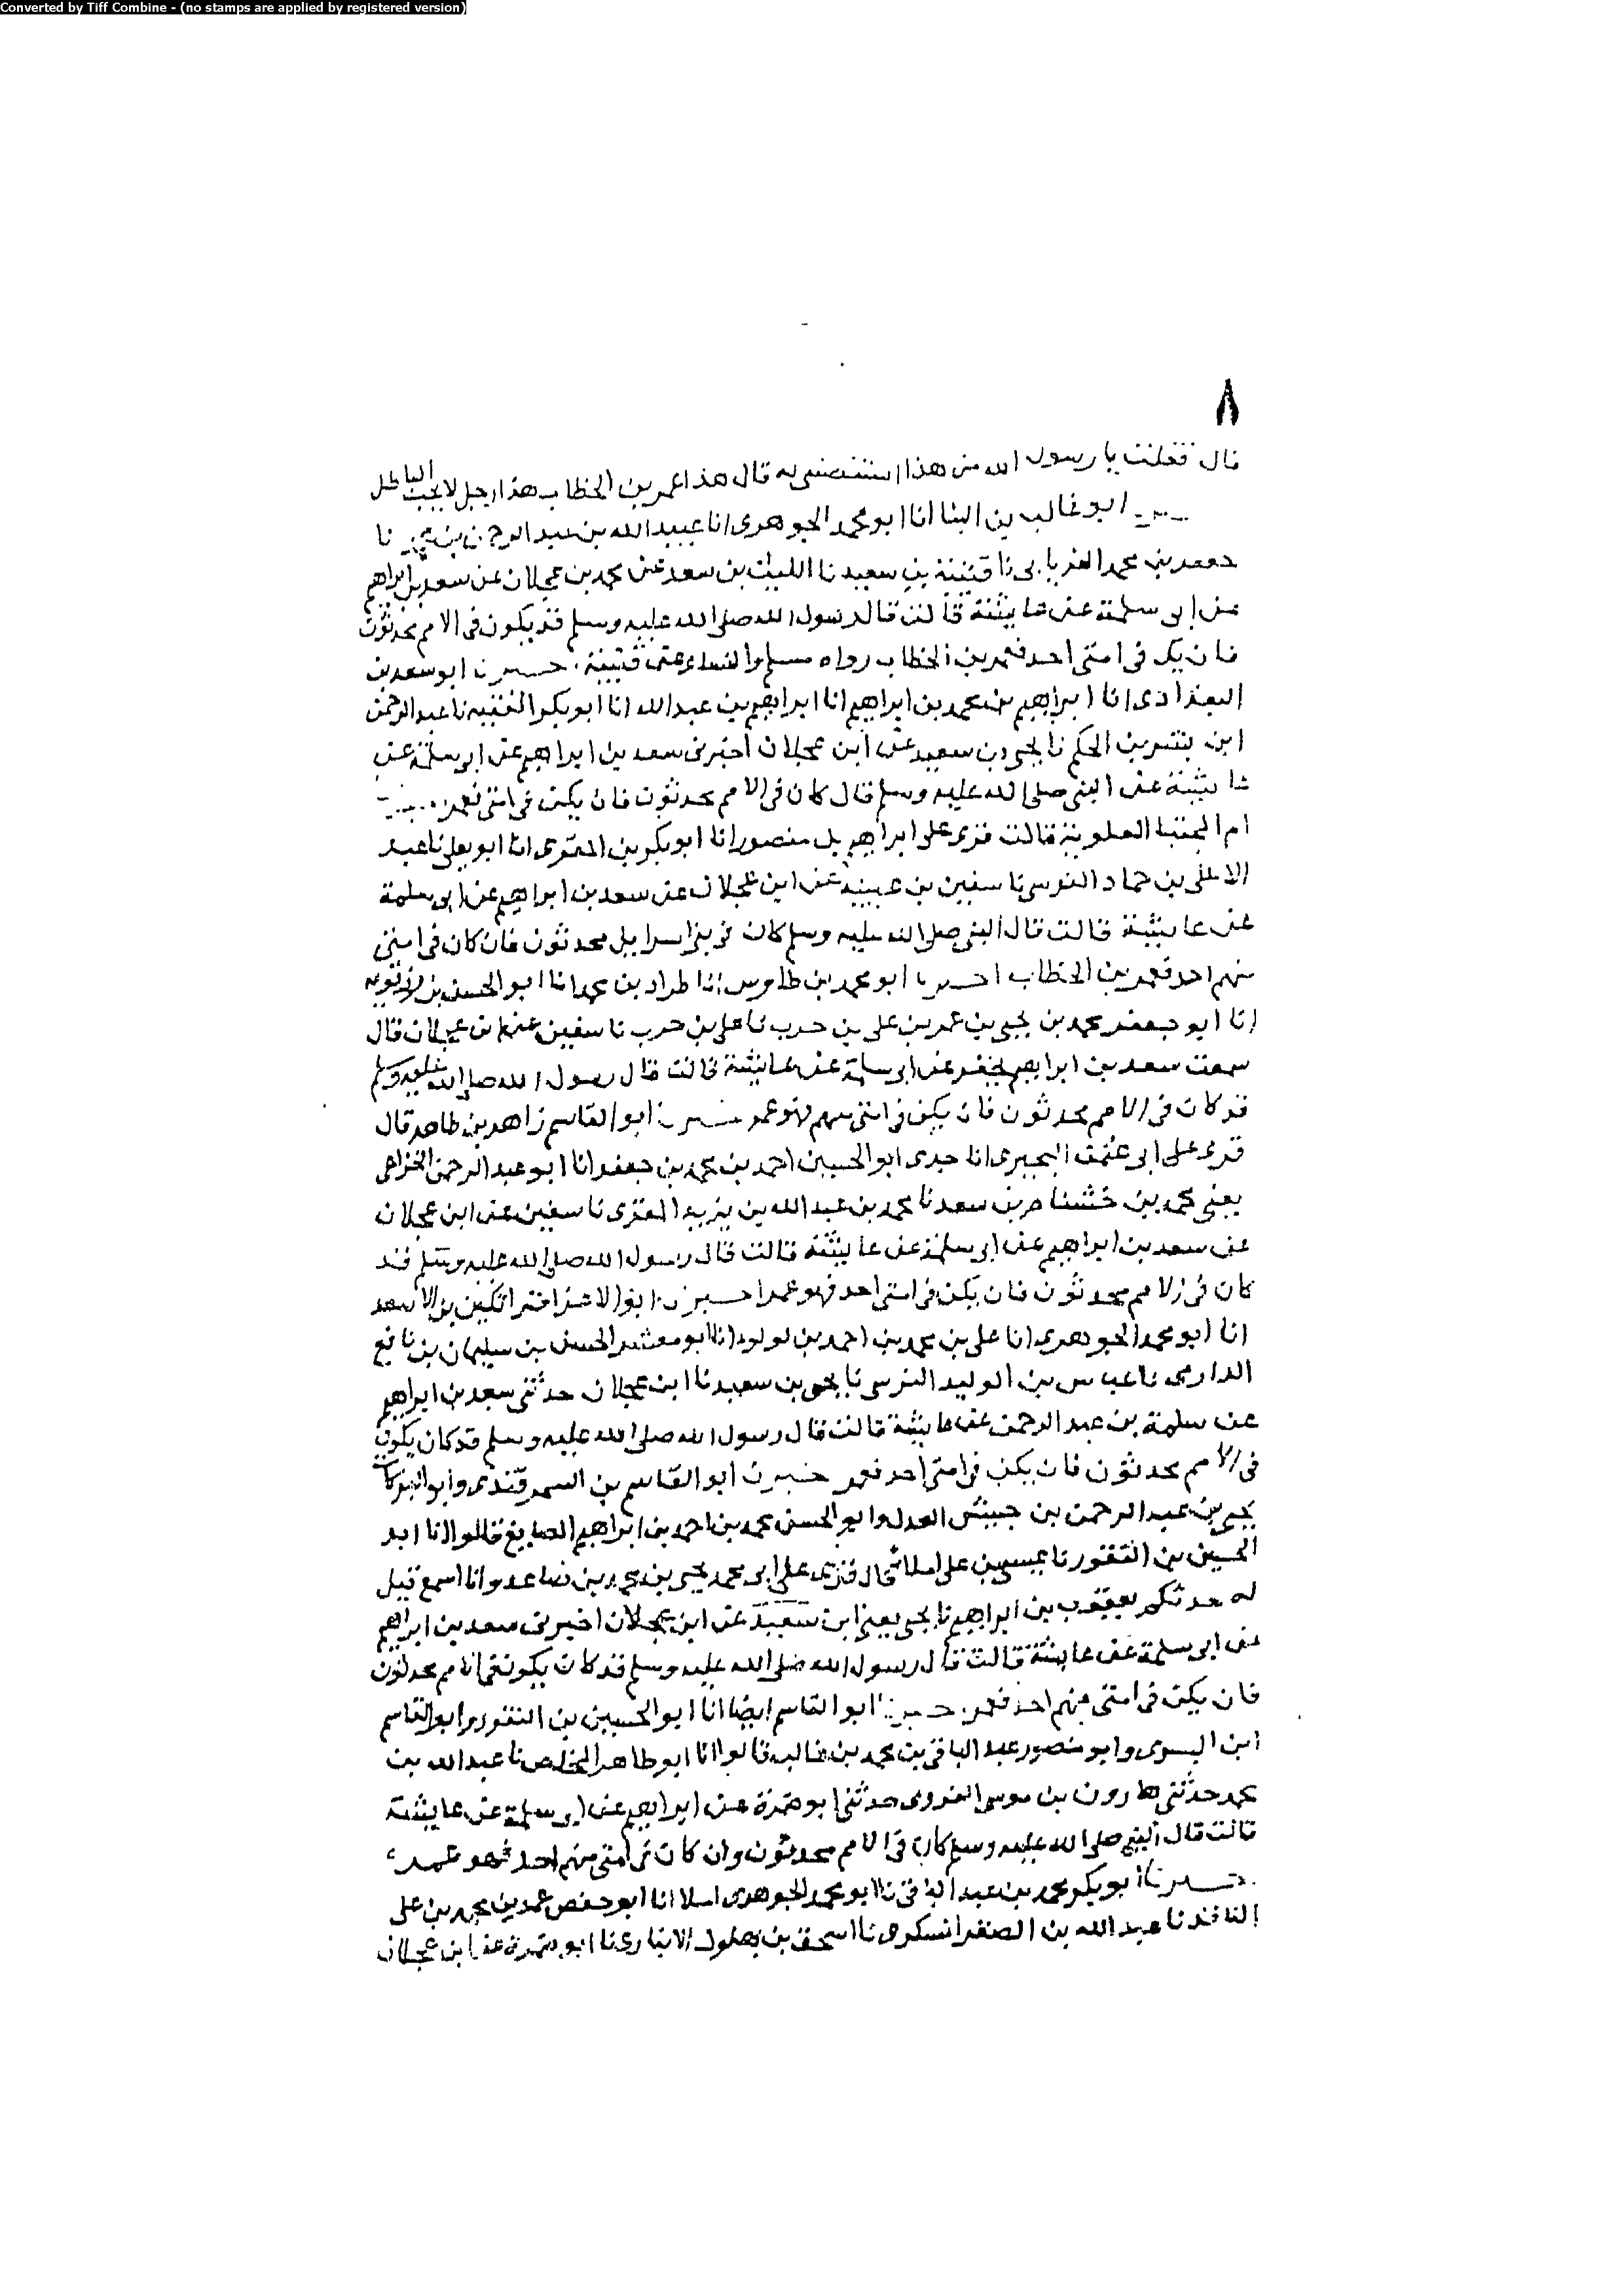 Converted by Tiff Combine - (no stamps are applied by registered version)
٨
قال فقلت يا رسول الله من هذا استنصتني له قال هذا عمر بن الخطاب هذا رجل لا يحب الباطل
ابو غالب بن البنا انا ابو محمد الجوهري انا عبيد الله بن عبد الرحمن بن نا
جعفر بن محمد الفريابي نا قتيبة بن سعيد نا الليث بن سعد عن محمد بن عجلان عن سعد بن ابراهيم
عن ابي سلمة عن عايشة قالت قال رسول الله صلى الله عليه وسلم قد يكون في الامم محدثون
فان يك في امتي احد فعمر بن الخطاب رواه مسلم والنساي عن قتيبة ابو سعد بن
البغدادي انا ابراهيم بن محمد بن ابراهيم انا ابراهيم بن عبد الله انا ابو بكر الفقيه نا عبد الرحمن
ابن بشر بن الحكم نا يحيى بن سعيد عن ابن عجلان اخبرني سعد بن ابراهيم عن ابي سلمة عن
عايشة عن النبي صلى الله عليه وسلم قال كان في الامم محدثون فان يكن في امتي فعمر
ام المجتبا العلوية قالت قرئ على ابراهيم بن منصور انا ابو بكر بن المقرئ انا ابو يعلى نا عبد
الاعلى بن حماد النرسي نا سفين بن عيينة عن ابن عجلان عن سعد بن ابراهيم عن ابي سلمة
عن عايشة قالت قال النبي صلى الله عليه وسلم كان في بني اسرايل محدثون فان كان في امتي
منهم احد فعمر بن الخطاب اخبرنا ابو محمد بن طاوس انا طراد بن محمد انا ابو الحسن بن رزقويه
انا ابو جعفر محمد بن يحيى بن عمر بن علي بن حرب نا علي بن حرب نا سفين عن ابن عجلان قال
سمعت سعد بن ابراهيم يخبر عن ابي سلمة عن عايشة قالت قال رسول الله صلى الله عليه وسلم
قد كان في الامم محدثون فان يكن في امتي منهم فهو عمر ابو القاسم زاهر بن طاهر قال
قرئ على ابي عثمن البحيري انا جدي ابو الحسين احمد بن محمد بن جعفر انا ابو عبد الرحمن الخزاعي
يعني محمد بن خشنام بن سعد نا محمد بن عبد الله بن يزيد المقرئ نا سفين عن ابن عجلان
عن سعد بن ابراهيم عن ابي سلمة عن عايشة قالت قال رسول الله صلى الله عليه وسلم قد
كان في الامم محدثون فان يكن في امتي احد فهو عمر اخبرنا ابو الاعز قراتكين بن الاسعد
انا ابو محمد الجوهري انا علي بن محمد بن احمد بن لولو انا ابو معشر الحسن بن سليمان بن نافع
الدارمي نا عباس بن الوليد النرسي نا يحيى بن سعيد نا ابن عجلان حدثني سعد بن ابراهيم
عن سلمة بن عبد الرحمن عن عايشة قالت قال رسول الله صلى الله عليه وسلم قد كان يكون
في الامم محدثون فان يكن في امتي احد فعمر ابو القاسم بن السمرقندي وابو البركات
يحيى بن عبد الرحمن بن حبيش العدل وابو الحسن محمد بن احمد بن ابراهيم الصايغ قالوا انا ابو
الحسين بن النقور نا عيسى بن علي املا قال قرئ على ابي محمد يحيى بن محمد بن صاعد وانا اسمع قيل
له حدثكم يعقوب بن ابراهيم نا يحيى يعني ابن سعيد عن ابن عجلان اخبرني سعد بن ابراهيم
عن ابي سلمة عن عايشة قالت قال رسول الله صلى الله عليه وسلم قد كان يكون في الامم محدثون
فان يكن في امتي منهم احد فعمر ابو القاسم ايضا انا ابو الحسين بن النقور وابو القاسم
ابن البسري وابو منصور عبد الباقي بن محمد بن غالب قالوا انا ابو طاهر المخلص نا عبد الله بن
محمد حدثني هارون بن موسى الفروي حدثني ابو ضمرة عن ابراهيم عن ابي سلمة عن عايشة
قالت قال النبي صلى الله عليه وسلم كان في الامم محدثون وان كان في امتي منهم احد فهو عمر
ابو بكر محمد بن عبد الباقي نا ابو محمد الجوهري املا انا ابو حفص عمر بن محمد بن علي
الناقد نا عبد الله بن الصقر السكري نا اسحق بن بهلول الانباري نا ابو ضمرة عن ابن عجلان